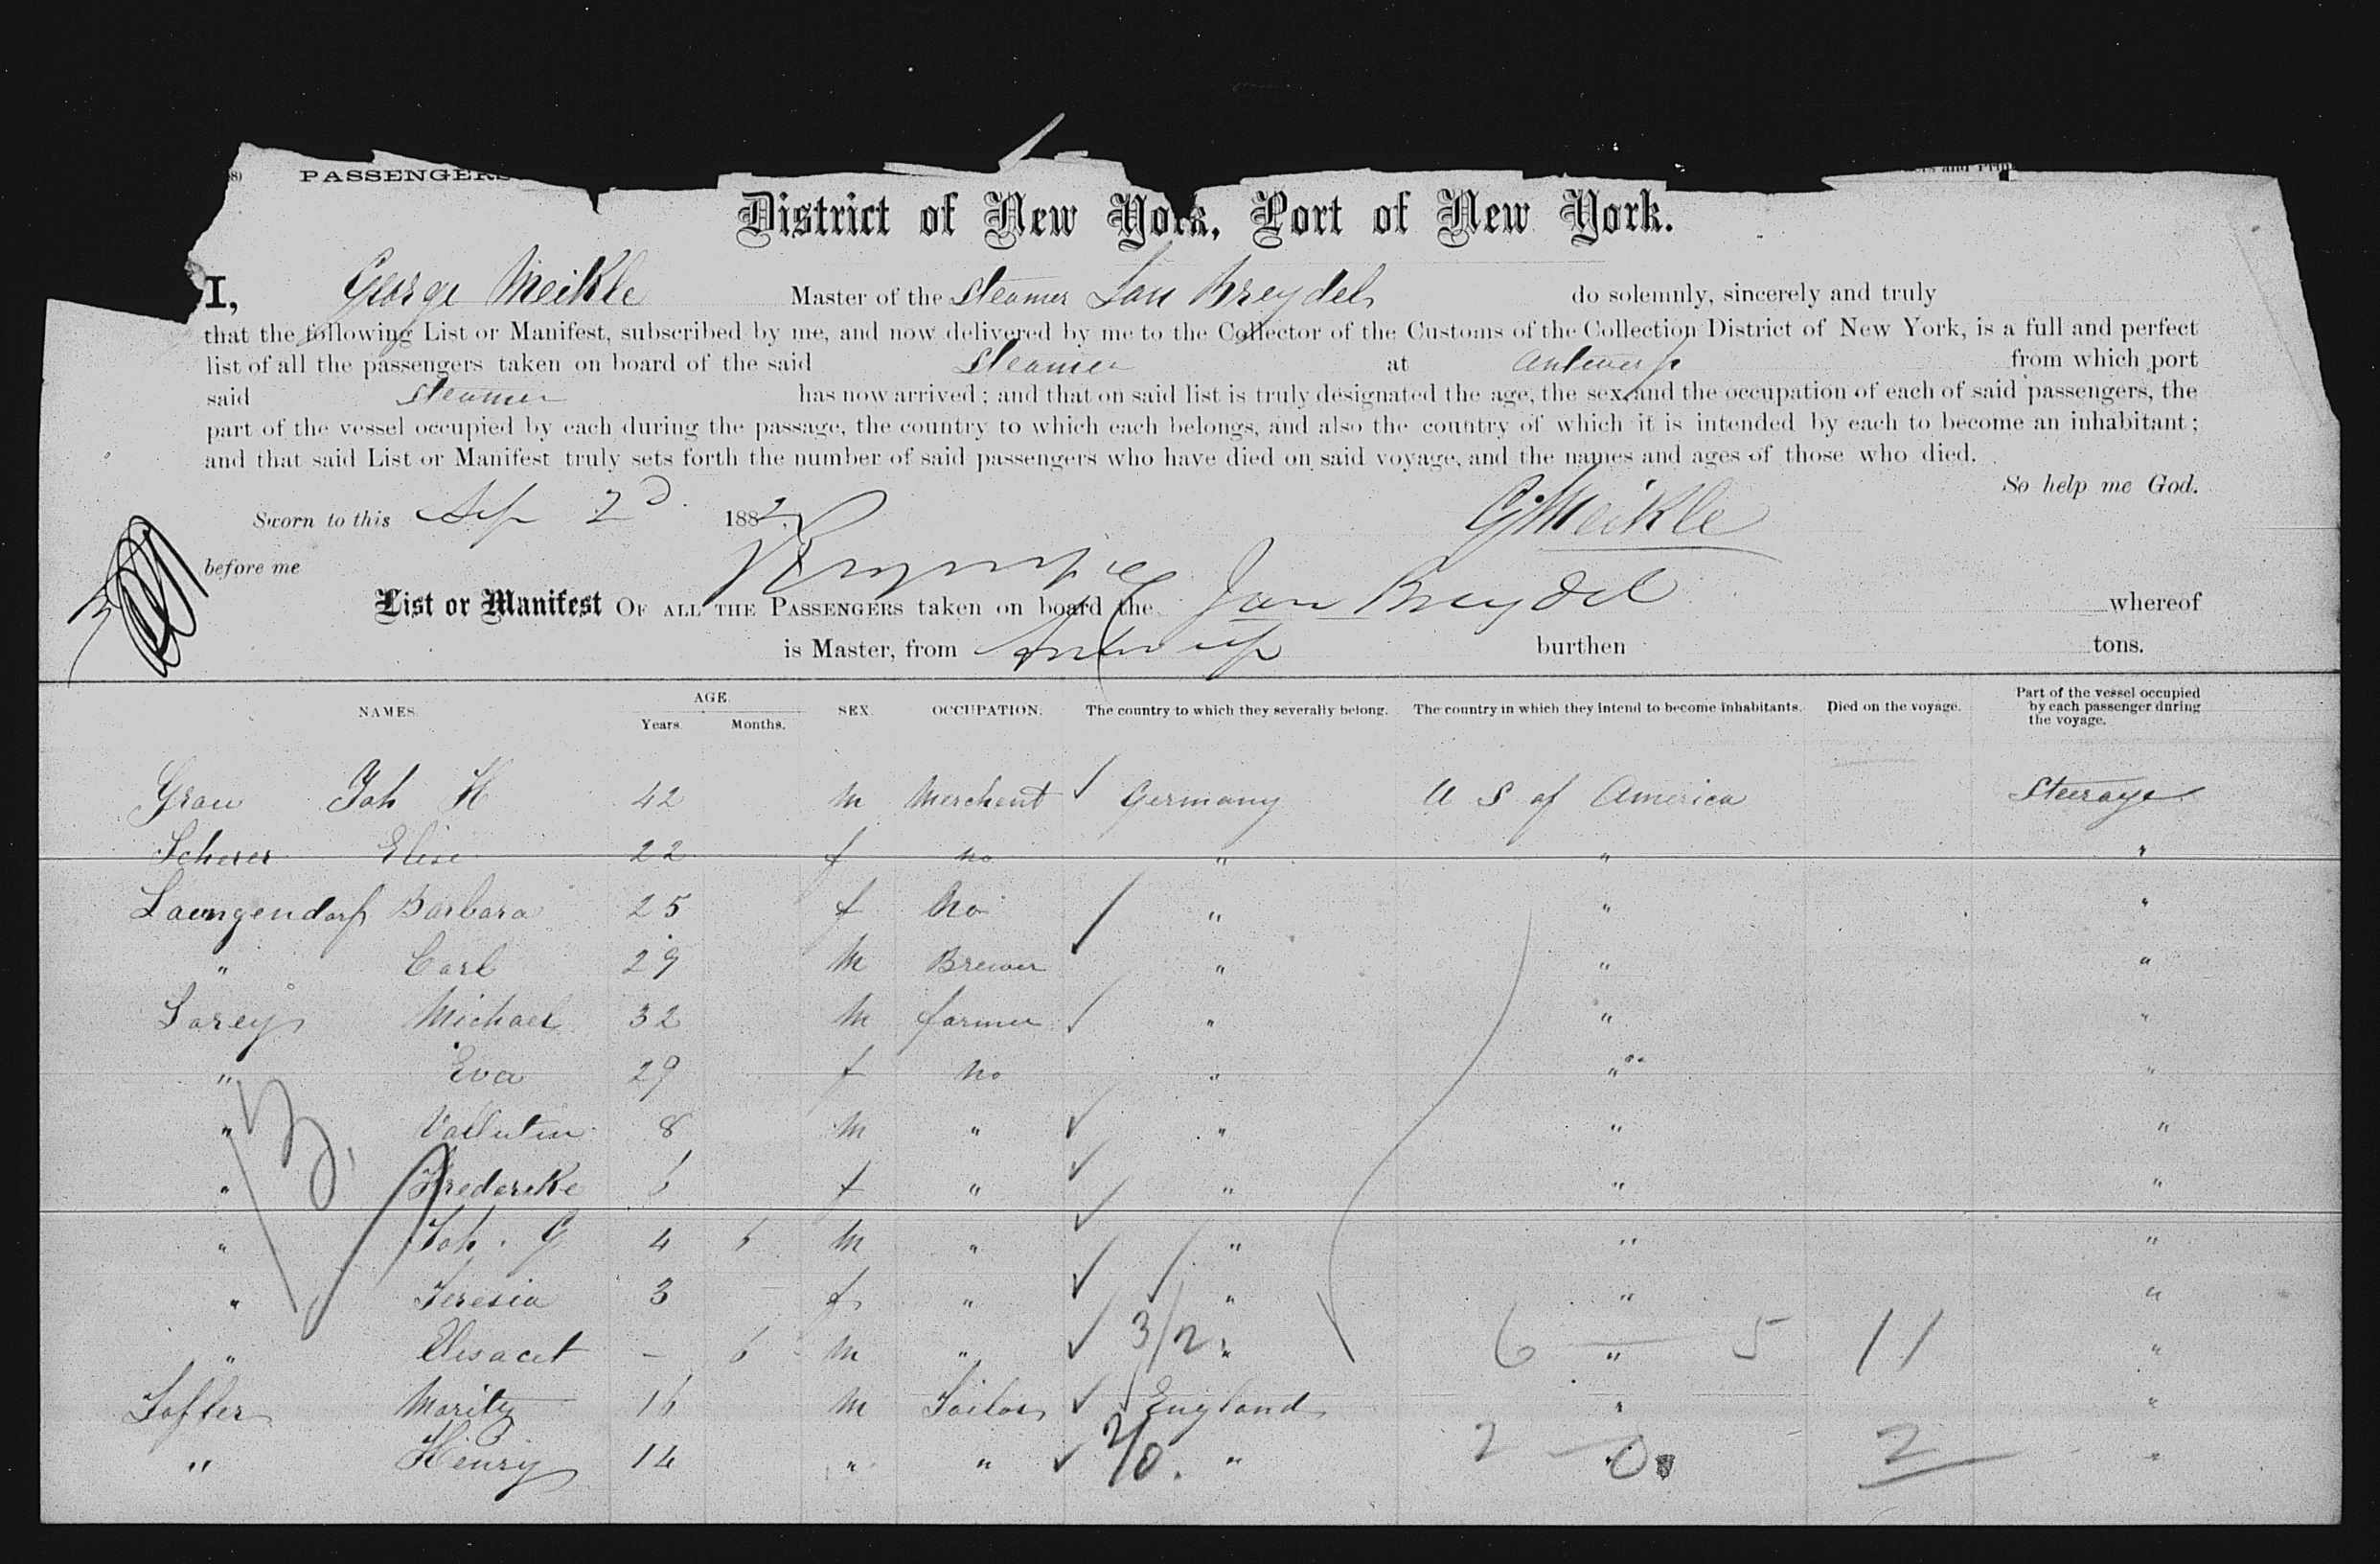 8) PASSENGERS
District of New York, Port of New York.
I, George Meikle Master of the Steamer Jan Breydel do solemnly, sincerely and truly
that the following List or Manifest, subscribed by me, and now delivered by me to the Collector of the Customs of the Collection District of New York, is a full and perfect
list of all the passengers taken on board of the said Steamer at Antwerp from which port
said Steamer has now arrived; and that on said list is truly designated the age, the sex, and the occupation of each of said passengers, the
part of the vessel occupied by each during the passage, the country to which each belongs, and also the country of which it is intended by each to become an inhabitant;
and that said List or Manifest truly sets forth the number of said passengers who have died on said voyage, and the names and ages of those who died.
So help me God.
Sworn to this Sep 2d 1882, G Meikle
before me
List or Manifest OF ALL THE PASSENGERS taken on board the Jan Breydel whereof
is Master, from Antwerp burthen tons.
NAMES. AGE. Years. Months. SEX. OCCUPATION. The country to which they severally belong. The country in which they intend to become inhabitants. Died on the voyage. Part of the vessel occupied by each passenger during the voyage.
Grau Joh H 42 m Merchent Germany U S of America Steerage
Scherer Elise 22 f no " " "
Laengendorf Barbara 25 f no " " "
" Carl 29 M Brewer " " "
Sorey Michael 32 M farmer " " "
" Eva 29 f no " " "
" Vallentin 8 M " " " "
" Frederike 6 f " " " "
" Joh. G 4 6 M " " " "
" Teresia 3 - f " " " "
" - 6 M " " 3/2 " 6 5 11 "
Loffler Moritz 16 M Tailor England " "
" Henry 14 " " 2/0. " 2 0 2 "